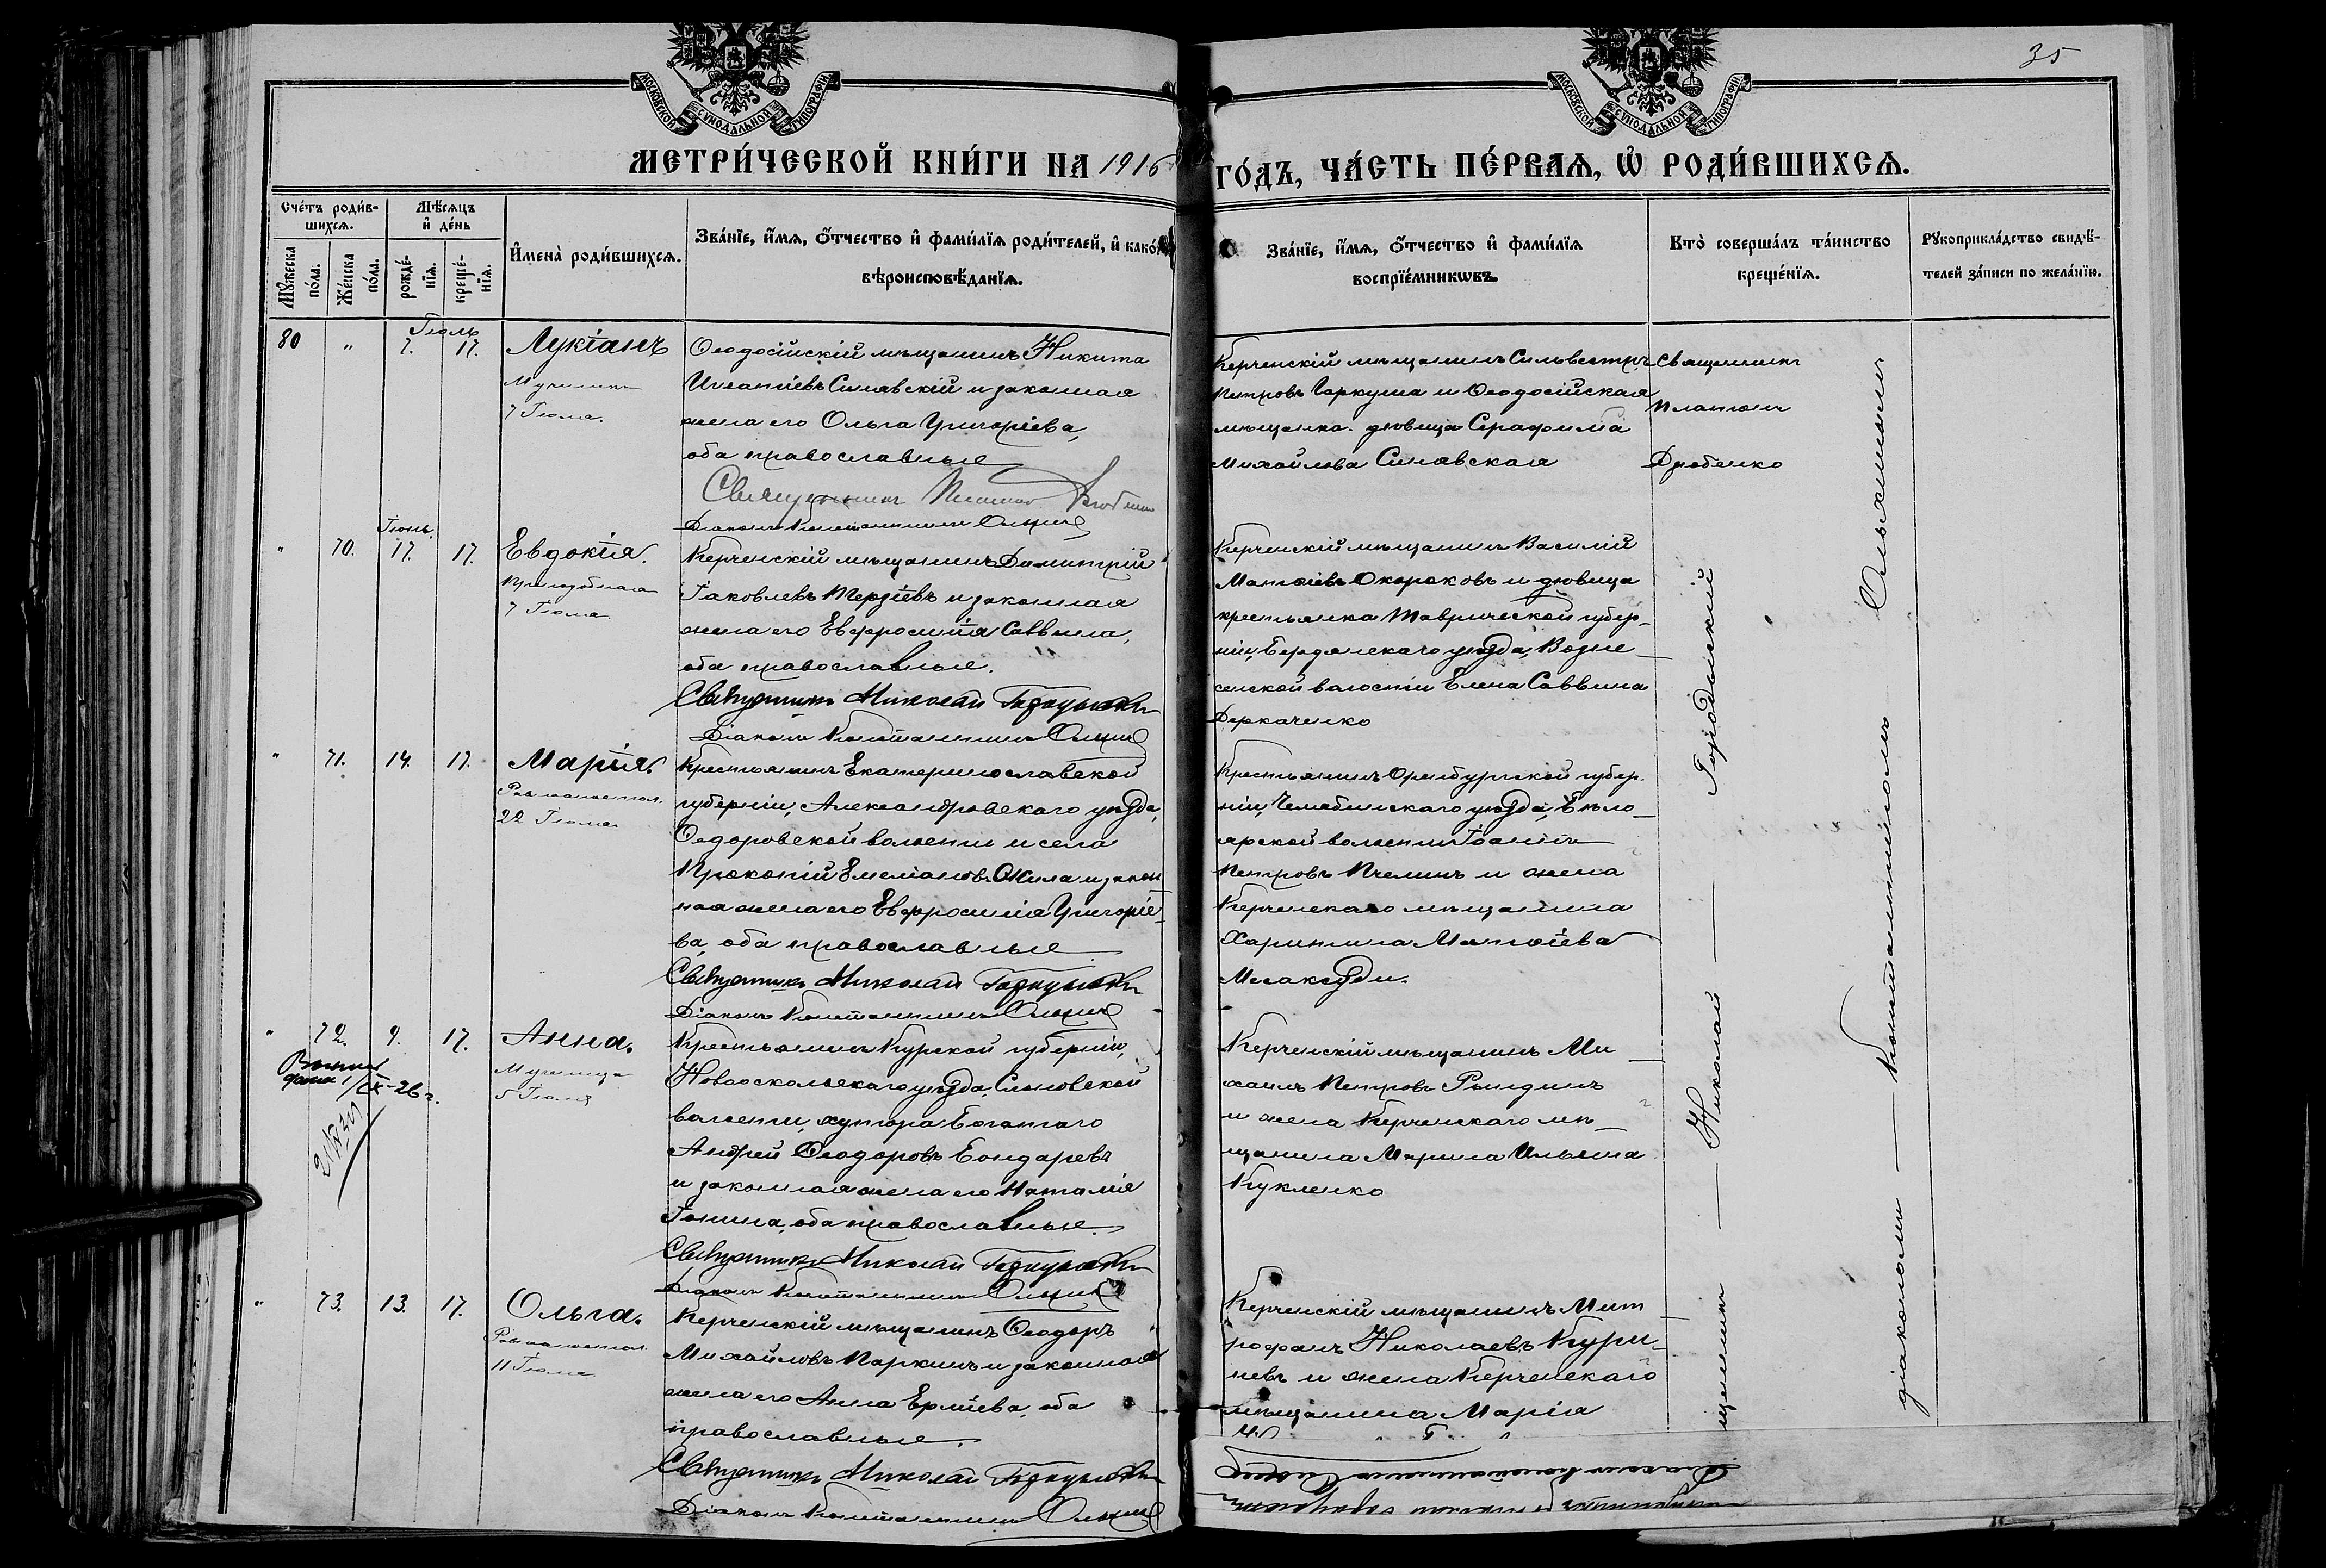 35
МОСКОВСКОЙ СѴНОДАЛЬНОЙ ТИПОГРАФІИ
МОСКОВСКОЙ СѴНОДАЛЬНОЙ ТИПОГРАФІИ
МЕТРИ́ЧЕСКОЙ КНИ́ГИ НА 1916
ГО́ДЪ, ЧА́СТЬ ПЕ́РВАѦ, Ѡ҆ РОДИ́ВШИХСѦ.
Сче́тъ роди́в-
шихсѧ.
Мѣ́сѧцъ
и҆ де́нь
Мꙋ́жеска
по́ла.
Же́нска
по́ла.
рожде́-
нїѧ.
креще́-
нїѧ.
И҆мена̀ роди́вшихсѧ.
Зва́нїе, и҆́мѧ, ѻ҆́тчество и҆ фами́лїѧ роди́телей, и҆ како́
вѣроисповѣ́данїѧ.
Зва́нїе, и҆́мѧ, ѻ҆́тчество и҆ фами́лїѧ
воспрїе́мникѡвъ.
Кто̀ соверша́лъ та́инство
креще́нїѧ.
Рꙋкоприкла́дство свидѣ́-
телей за́писи по жела́нїю.
Іюль
80 " 7. 17. Лукіанъ
Мученика
7 Іюля.
Ѳеодосійскій мѣщанинъ Никита
Игнатіевъ Синявскій и законная
жена его Ольга Григоріева,
оба православные
Священникъ
Діаконъ Константинъ
Керченскій мѣщанинъ Сильвестръ
Петровъ Гаркуша и Ѳеодосійская
мѣщанка девица Серафима
Михайлова Синявская
Священникъ
Платонъ
Дробенко
Іюнь
" 70. 17. 17. Евдокія.
Преподобная
7 Іюля
Керченскій мѣщанинъ Димитрій
Іаковлевъ Терзіевъ и законная
жена его Евфросинія Саввина,
оба православные.
Священникъ Николай
Діаконъ Константинъ
Керченскій мѣщанинъ Василій
Матѳіевъ Окороковъ и дѣвица
крестьянка Таврической губер-
ніи, Бердянскаго уѣзда, Возне-
сенской волости Елена Саввина
Деркаченко
" 71. 14. 17. Марія.
Равноапостол.
22 Іюля
Крестьянинъ Екатеринославской
губерніи, Александровскаго уѣзда,
Ѳедоровской волости и села
Прокопій Емеліановъ Жила и закон
ная жена его Евфросинія Григоріе-
ва, оба православные
Священникъ Николай
Діаконъ Константинъ
Крестьянинъ Оренбургской губер-
ніи, Челябинскаго уѣзда, Бѣло-
ярской волости Іоаннъ
Петровъ Пчелинъ и жена
Керченскаго мѣщанина
Харитина Матѳіева
Месаксуди.
" 72. 9. 17. Анна.
Мученица
5 Іюля
1/IX-26 г.
Крестьянинъ Курской губерніи,
Новооскольскаго уѣзда, Слоновской
волости, хутора Богатаго
Андрей Ѳеодоровъ Бондаревъ
и законная жена его Наталія
Іонина, оба православные.
Священникъ Николай
Діаконъ Константинъ
Керченскій мѣщанинъ Ми-
хаилъ Петровъ Рындинъ
и жена Керченскаго мѣ-
щанина Марина Ильина
Кукленко
" 73. 13. 17. Ольга.
Равноапостол.
11 Іюля
Керченскій мѣщанинъ Ѳеодоръ
Михайловъ Паркинъ и законная
жена его Анна Ерміева, оба
православные.
Священникъ Николай
Діаконъ Константинъ
Керченскій мѣщанинъ Мит
рофанъ Николаевъ Кури-
невъ и жена Керченскаго
мѣщанина Марія
щенникъ — Николай — Городыский
діакономъ — Константиномъ